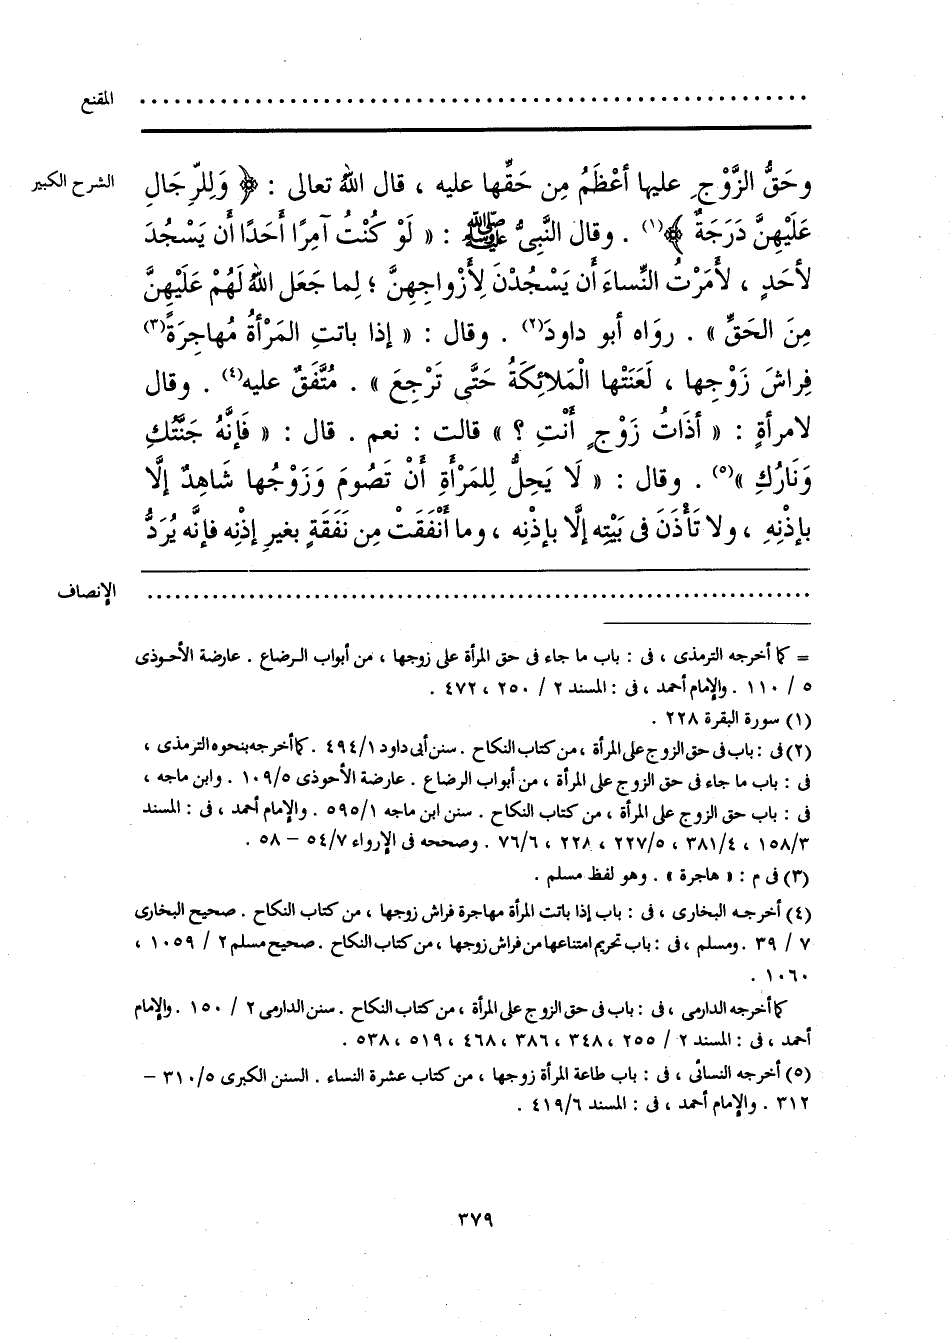 المقنع ........................................................
الشرح الكبير وحَقُّ الزَّوْجِ عليها أعْظَمُ مِن حَقِّها عليه ، قال اللهُ تعالى : ﴿ وَلِلرِّجَالِ
عَلَيْهِنَّ دَرَجَةٌ ﴾(١) . وقال النَّبِىُّ ﷺ : « لَوْ كُنْتُ آمِرًا أَحَدًا أَن يَسْجُدَ
لأحَدٍ ، لأمَرْتُ النِّساءَ أَن يَسْجُدْنَ لِأَزْواجِهِنَّ ؛ لِما جَعَل اللهُ لَهُمْ عَلَيْهِنَّ
مِنَ الحَقِّ » . روَاه أبو داودَ(٢) . وقال : « إذا باتتِ المَرْأةُ مُهاجِرَةً(٣)
فِراشَ زَوْجِها ، لَعَنَتْها الْمَلائِكَةُ حَتَّى تَرْجِعَ » . مُتَّفَقٌ عليه(٤) . وقال
لامرأةٍ : « أذَاتُ زَوْجٍ أَنْتِ ؟ » قالت : نعم . قال : « فَإنَّهُ جَنَّتُكِ
وَنَارُكِ »(٥) . وقال : « لَا يَحِلُّ لِلمَرْأةِ أَنْ تَصُومَ وَزَوْجُها شَاهِدٌ إلَّا
بإذْنِهِ ، ولا تَأْذَنَ فى بَيْتِه إلَّا بإذْنِه ، وما أنْفَقَتْ مِن نَفَقَةٍ بغيرِ إذْنِه فإنَّه يُرَدُّ
الإنصاف ........................................................
= كما أخرجه الترمذى ، فى : باب ما جاء فى حق المرأة على زوجها ، من أبواب الرضاع . عارضة الأحوذى
٥ / ١١٠ . والإمام أحمد ، فى : المسند ٢ / ٢٥٠ ، ٤٧٢ .
(١) سورة البقرة ٢٢٨ .
(٢) فى : باب فى حق الزوج على المرأة ، من كتاب النكاح . سنن أبى داود ٤٩٤/١ . كما أخرجه بنحوه الترمذى ،
فى : باب ما جاء فى حق الزوج على المرأة ، من أبواب الرضاع . عارضة الأحوذى ١٠٩/٥ . وابن ماجه ،
فى : باب حق الزوج على المرأة ، من كتاب النكاح . سنن ابن ماجه ٥٩٥/١ . والإمام أحمد ، فى : المسند
١٥٨/٣ ، ٣٨١/٤ ، ٢٢٧/٥ ، ٢٢٨ ، ٧٦/٦ . وصححه فى الإرواء ٥٤/٧ – ٥٨ .
(٣) فى م : « هاجرة » . وهو لفظ مسلم .
(٤) أخرجه البخارى ، فى : باب إذا باتت المرأة مهاجرة فراش زوجها ، من كتاب النكاح . صحيح البخارى
٧ / ٣٩ . ومسلم ، فى : باب تحريم امتناعها من فراش زوجها ، من كتاب النكاح . صحيح مسلم ٢ / ١٠٥٩ ،
١٠٦٠ .
كما أخرجه الدارمى ، فى : باب فى حق الزوج على المرأة ، من كتاب النكاح . سنن الدارمى ٢ / ١٥٠ . والإمام
أحمد ، فى : المسند ٢ / ٢٥٥ ، ٣٤٨ ، ٣٨٦ ، ٤٦٨ ، ٥١٩ ، ٥٣٨ .
(٥) أخرجه النسائى ، فى : باب طاعة المرأة زوجها ، من كتاب عشرة النساء . السنن الكبرى ٣١٠/٥ –
٣١٢ . والإمام أحمد ، فى : المسند ٤١٩/٦ .
٣٧٩